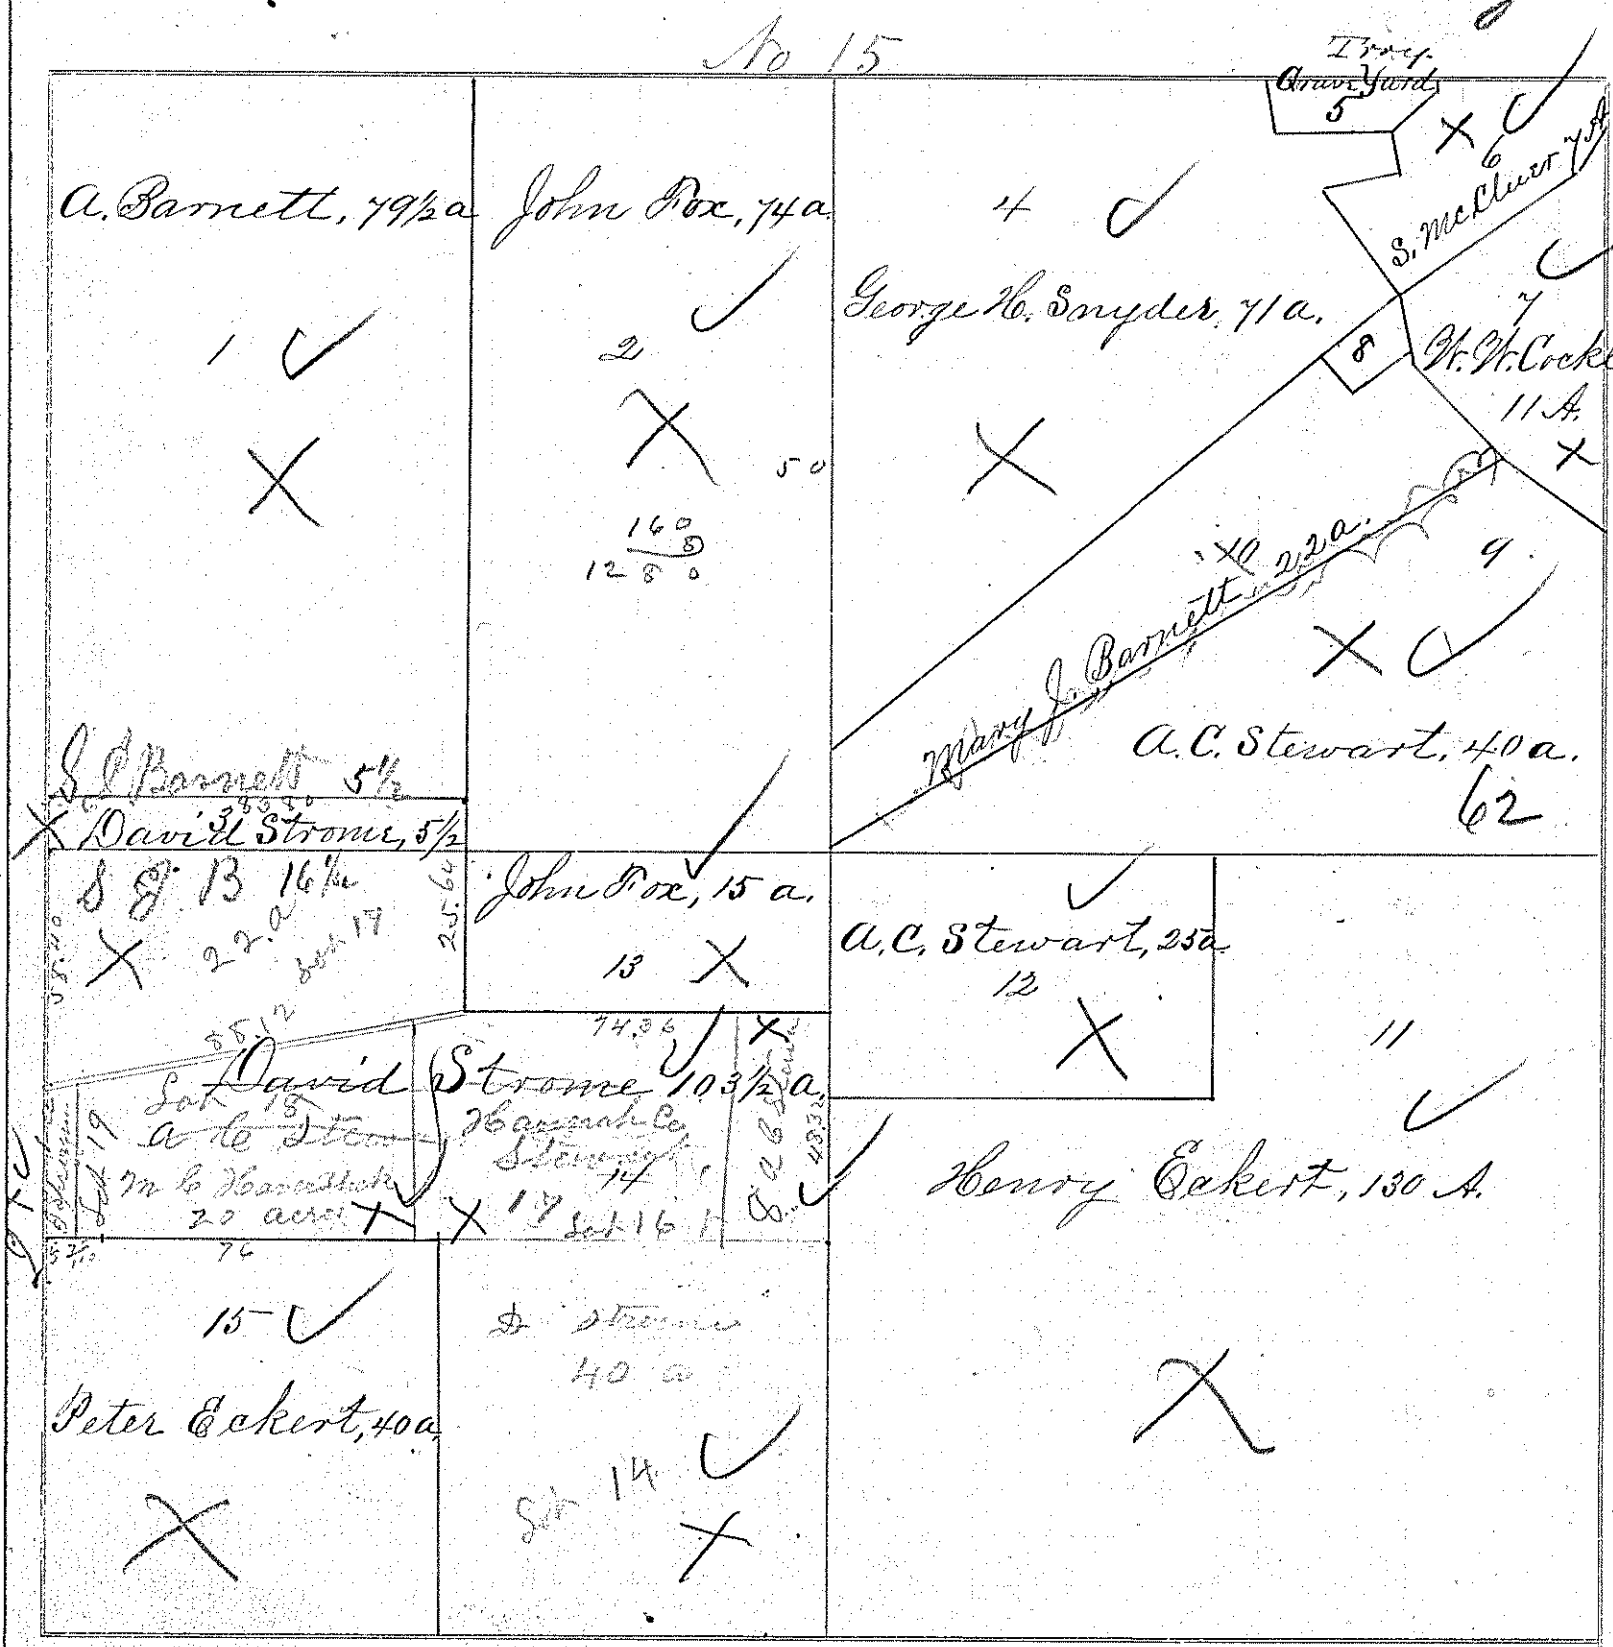 No 15
Troy
Grave Yard
5
6
S. McCluer 7 A
A. Barnett, 79½ a
1
John Fox, 74 a
2
50
160
8
1280
4
George H. Snyder, 71 a.
7
W. W. Cocke
11 A.
8
Mary J. Barnett 22 a.
9.
A. C. Stewart, 40 a.
62
S. P. Barnett 5½
David Strome, 5½
S J B 16½
22 a
Lot 17
25.64
88.12
John Fox, 15 a.
13
A. C. Stewart, 25 a.
12
11
Henry Eckert, 130 A.
74.36
David Strome 103½ a.
Lot 18
A C Stew
M C Haverstick
20 acres
Lot 19
Hannah C.
Stewart
14
17
Lot 16
48.32
76
15
Peter Eckert, 40 a.
D Strome
40 a
14